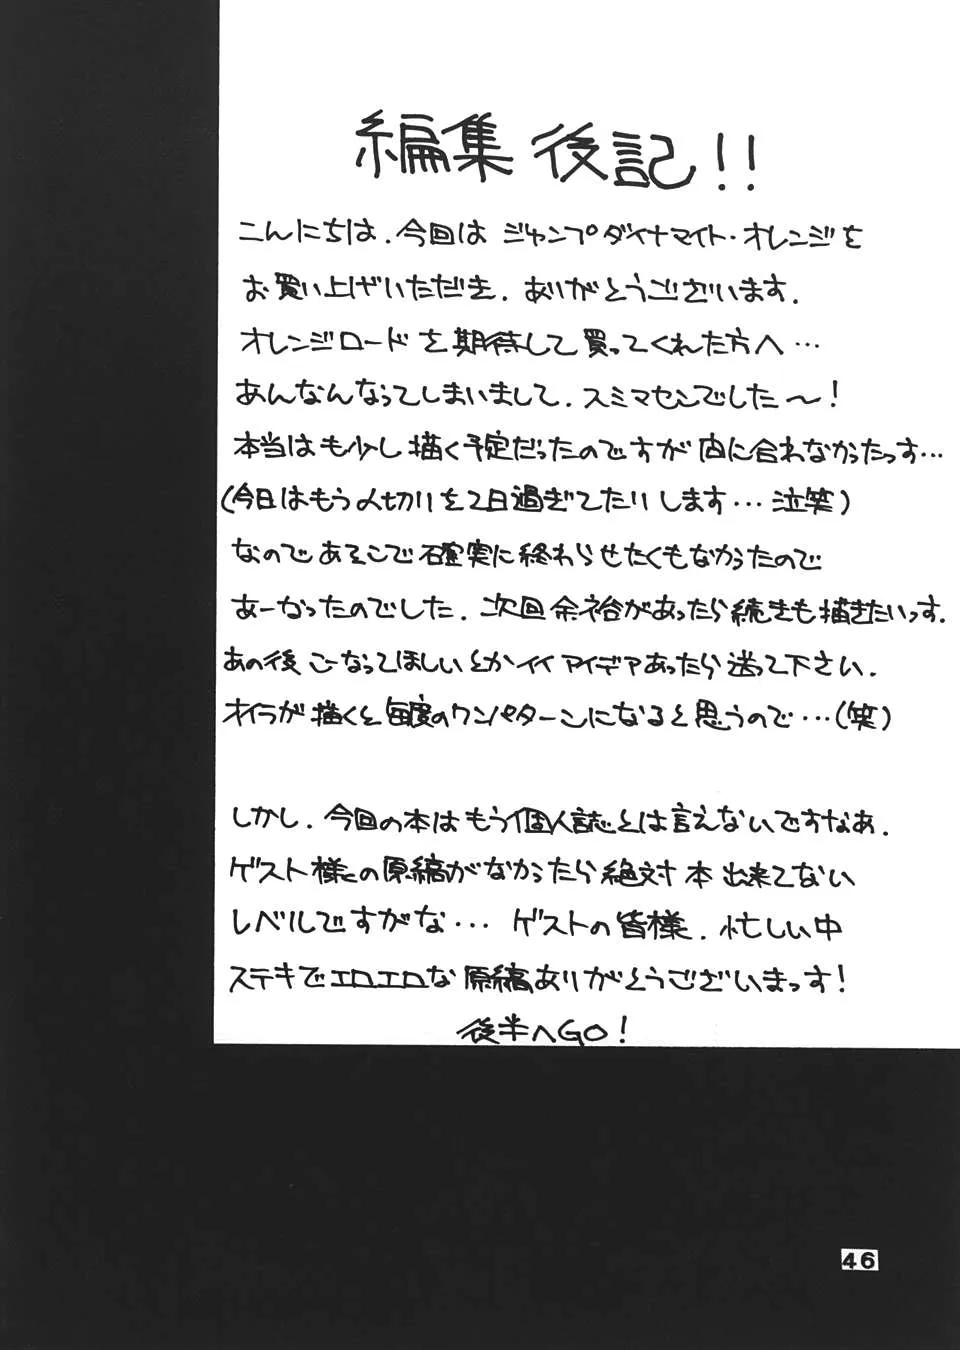 編集後記!!
こんにちは、今回はジャンプダイナマイト・オレンジを
お買い上げいただき、ありがとうございます。
オレンジロードを期待して買ってくれた方へ…
あんなんなってしまいまして、スミマセンでした〜!
本当はも少し描く予定だったのですが間に合わなかったっす…
(今日はもう〆切りを2日過ぎてたりします…泣笑)
なのであそこで確実に終わらせたくもなかったので
あーなったのでした。次回余裕があったら続きも描きたいっす。
あの後こーなってほしいとかイイアイデアあったら送って下さい。
オイラが描くと毎度のワンパターンになると思うので…(笑)
しかし、今回の本はもう個人誌とは言えないですなぁ。
ゲスト様の原稿がなかったら絶対本出来てない
レベルですがな… ゲストの皆様、忙しい中
ステキでエロエロな原稿ありがとうございまっす!
後半へGO!
46